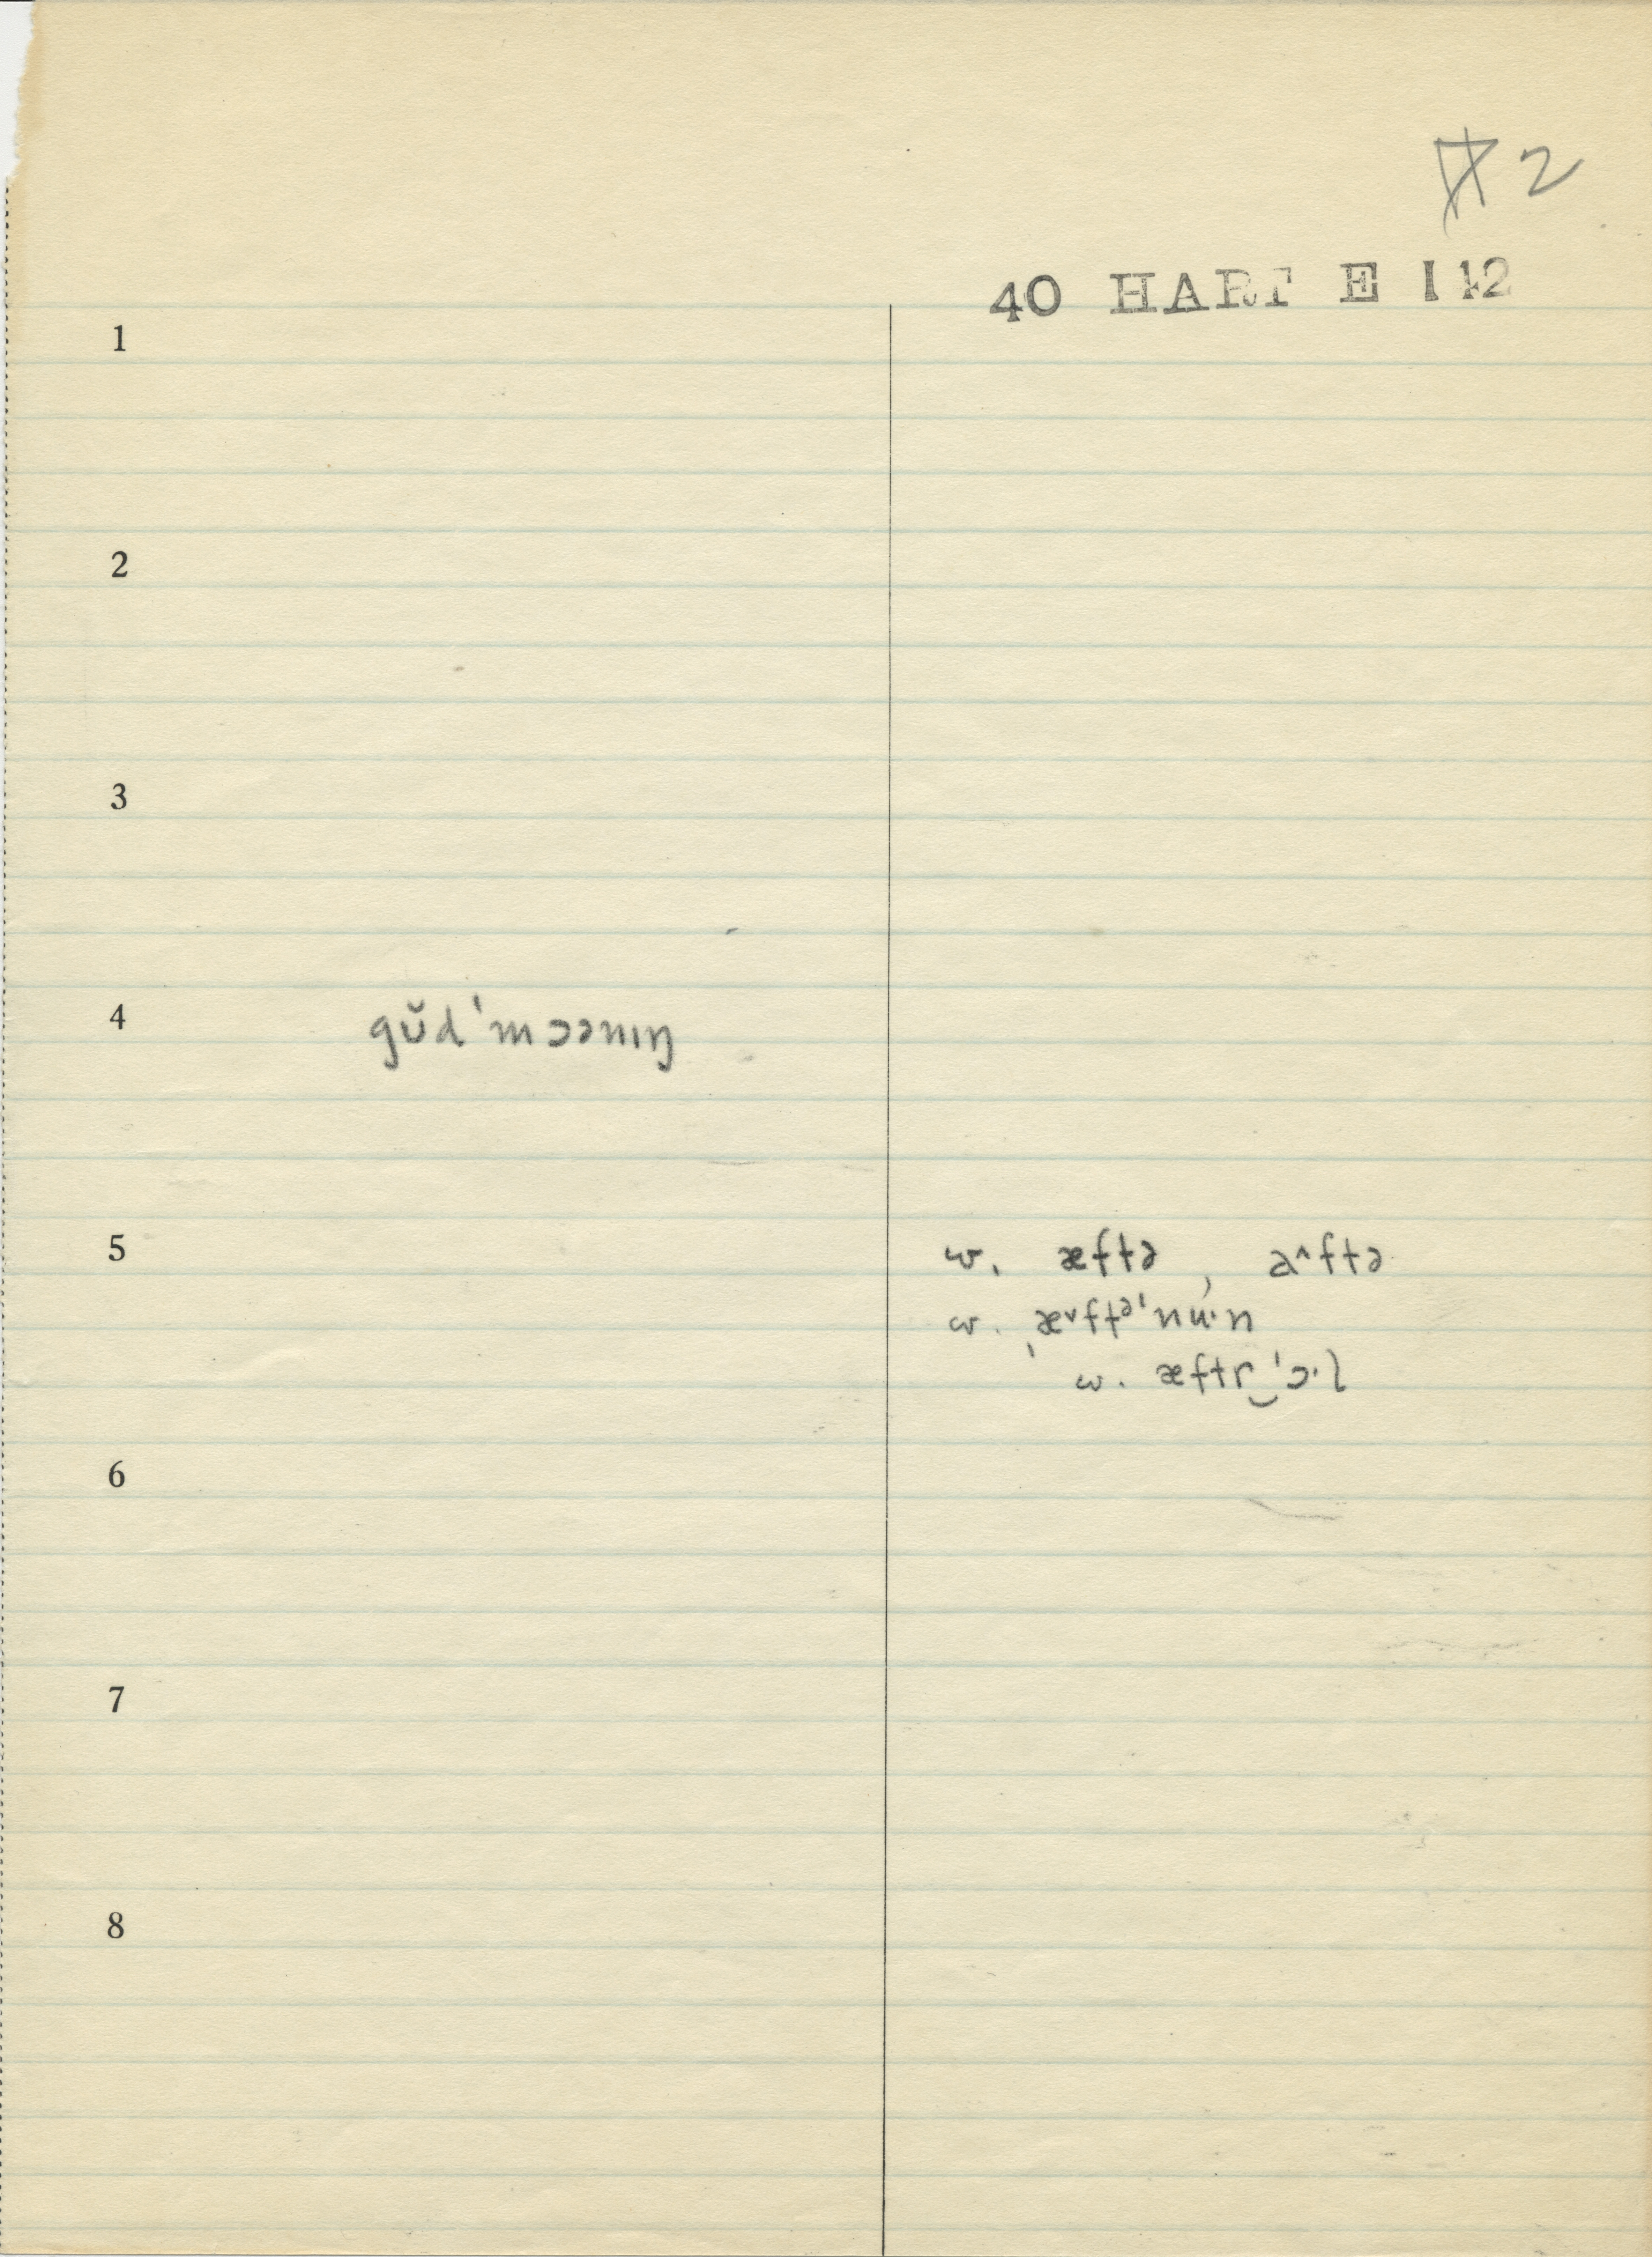 #2
40 HART E I 12
1
2
3
4 gʊ̆dˈmɔənɪŋ
5 w. æftə, a^ftə
w. ˌæ˅ftᵊˈnu·n
w. æftr‿ˈɔ·l
6
7
8